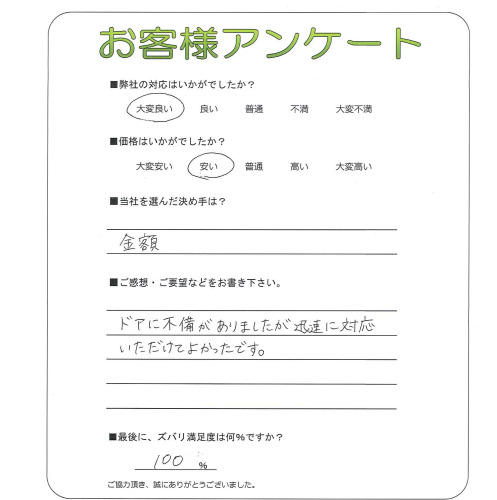 お客様アンケート
■弊社の対応はいかがでしたか？
大変良い 良い 普通 不満 大変不満
■価格はいかがでしたか？
大変安い 安い 普通 高い 大変高い
■当社を選んだ決め手は？
金額
■ご感想・ご要望などをお書き下さい。
ドアに不備がありましたが迅速に対応
いただけてよかったです。
■最後に、ズバリ満足度は何%ですか？
100 %
ご協力頂き、誠にありがとうございました。